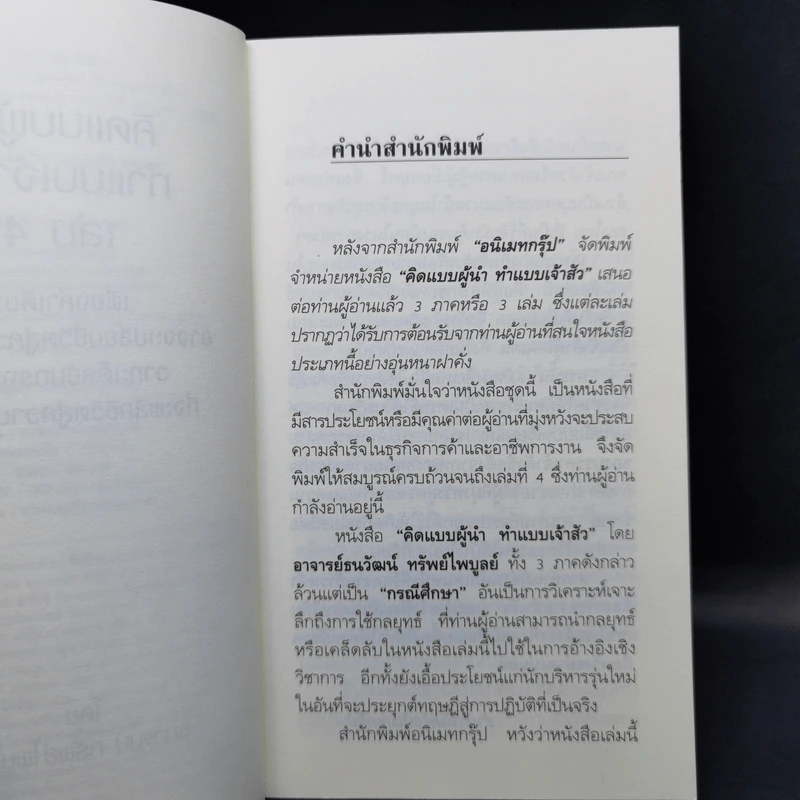 คำนำสำนักพิมพ์
หลังจากสำนักพิมพ์ “อนิเมทกรุ๊ป” จัดพิมพ์
จำหน่ายหนังสือ “คิดแบบผู้นำ ทำแบบเจ้าสัว” เสนอ
ต่อท่านผู้อ่านแล้ว 3 ภาคหรือ 3 เล่ม ซึ่งแต่ละเล่ม
ปรากฏว่าได้รับการต้อนรับจากท่านผู้อ่านที่สนใจหนังสือ
ประเภทนี้อย่างอุ่นหนาฝาคั่ง
สำนักพิมพ์มั่นใจว่าหนังสือชุดนี้ เป็นหนังสือที่
มีสารประโยชน์หรือมีคุณค่าต่อผู้อ่านที่มุ่งหวังจะประสบ
ความสำเร็จในธุรกิจการค้าและอาชีพการงาน จึงจัด
พิมพ์ให้สมบูรณ์ครบถ้วนจนถึงเล่มที่ 4 ซึ่งท่านผู้อ่าน
กำลังอ่านอยู่นี้
หนังสือ “คิดแบบผู้นำ ทำแบบเจ้าสัว” โดย
อาจารย์ธนวัฒน์ ทรัพย์ไพบูลย์ ทั้ง 3 ภาคดังกล่าว
ล้วนแต่เป็น “กรณีศึกษา” อันเป็นการวิเคราะห์เจาะ
ลึกถึงการใช้กลยุทธ์ ที่ท่านผู้อ่านสามารถนำกลยุทธ์
หรือเคล็ดลับในหนังสือเล่มนี้ไปใช้ในการอ้างอิงเชิง
วิชาการ อีกทั้งยังเอื้อประโยชน์แก่นักบริหารรุ่นใหม่
ในอันที่จะประยุกต์ทฤษฎีสู่การปฏิบัติที่เป็นจริง
สำนักพิมพ์อนิเมทกรุ๊ป หวังว่าหนังสือเล่มนี้